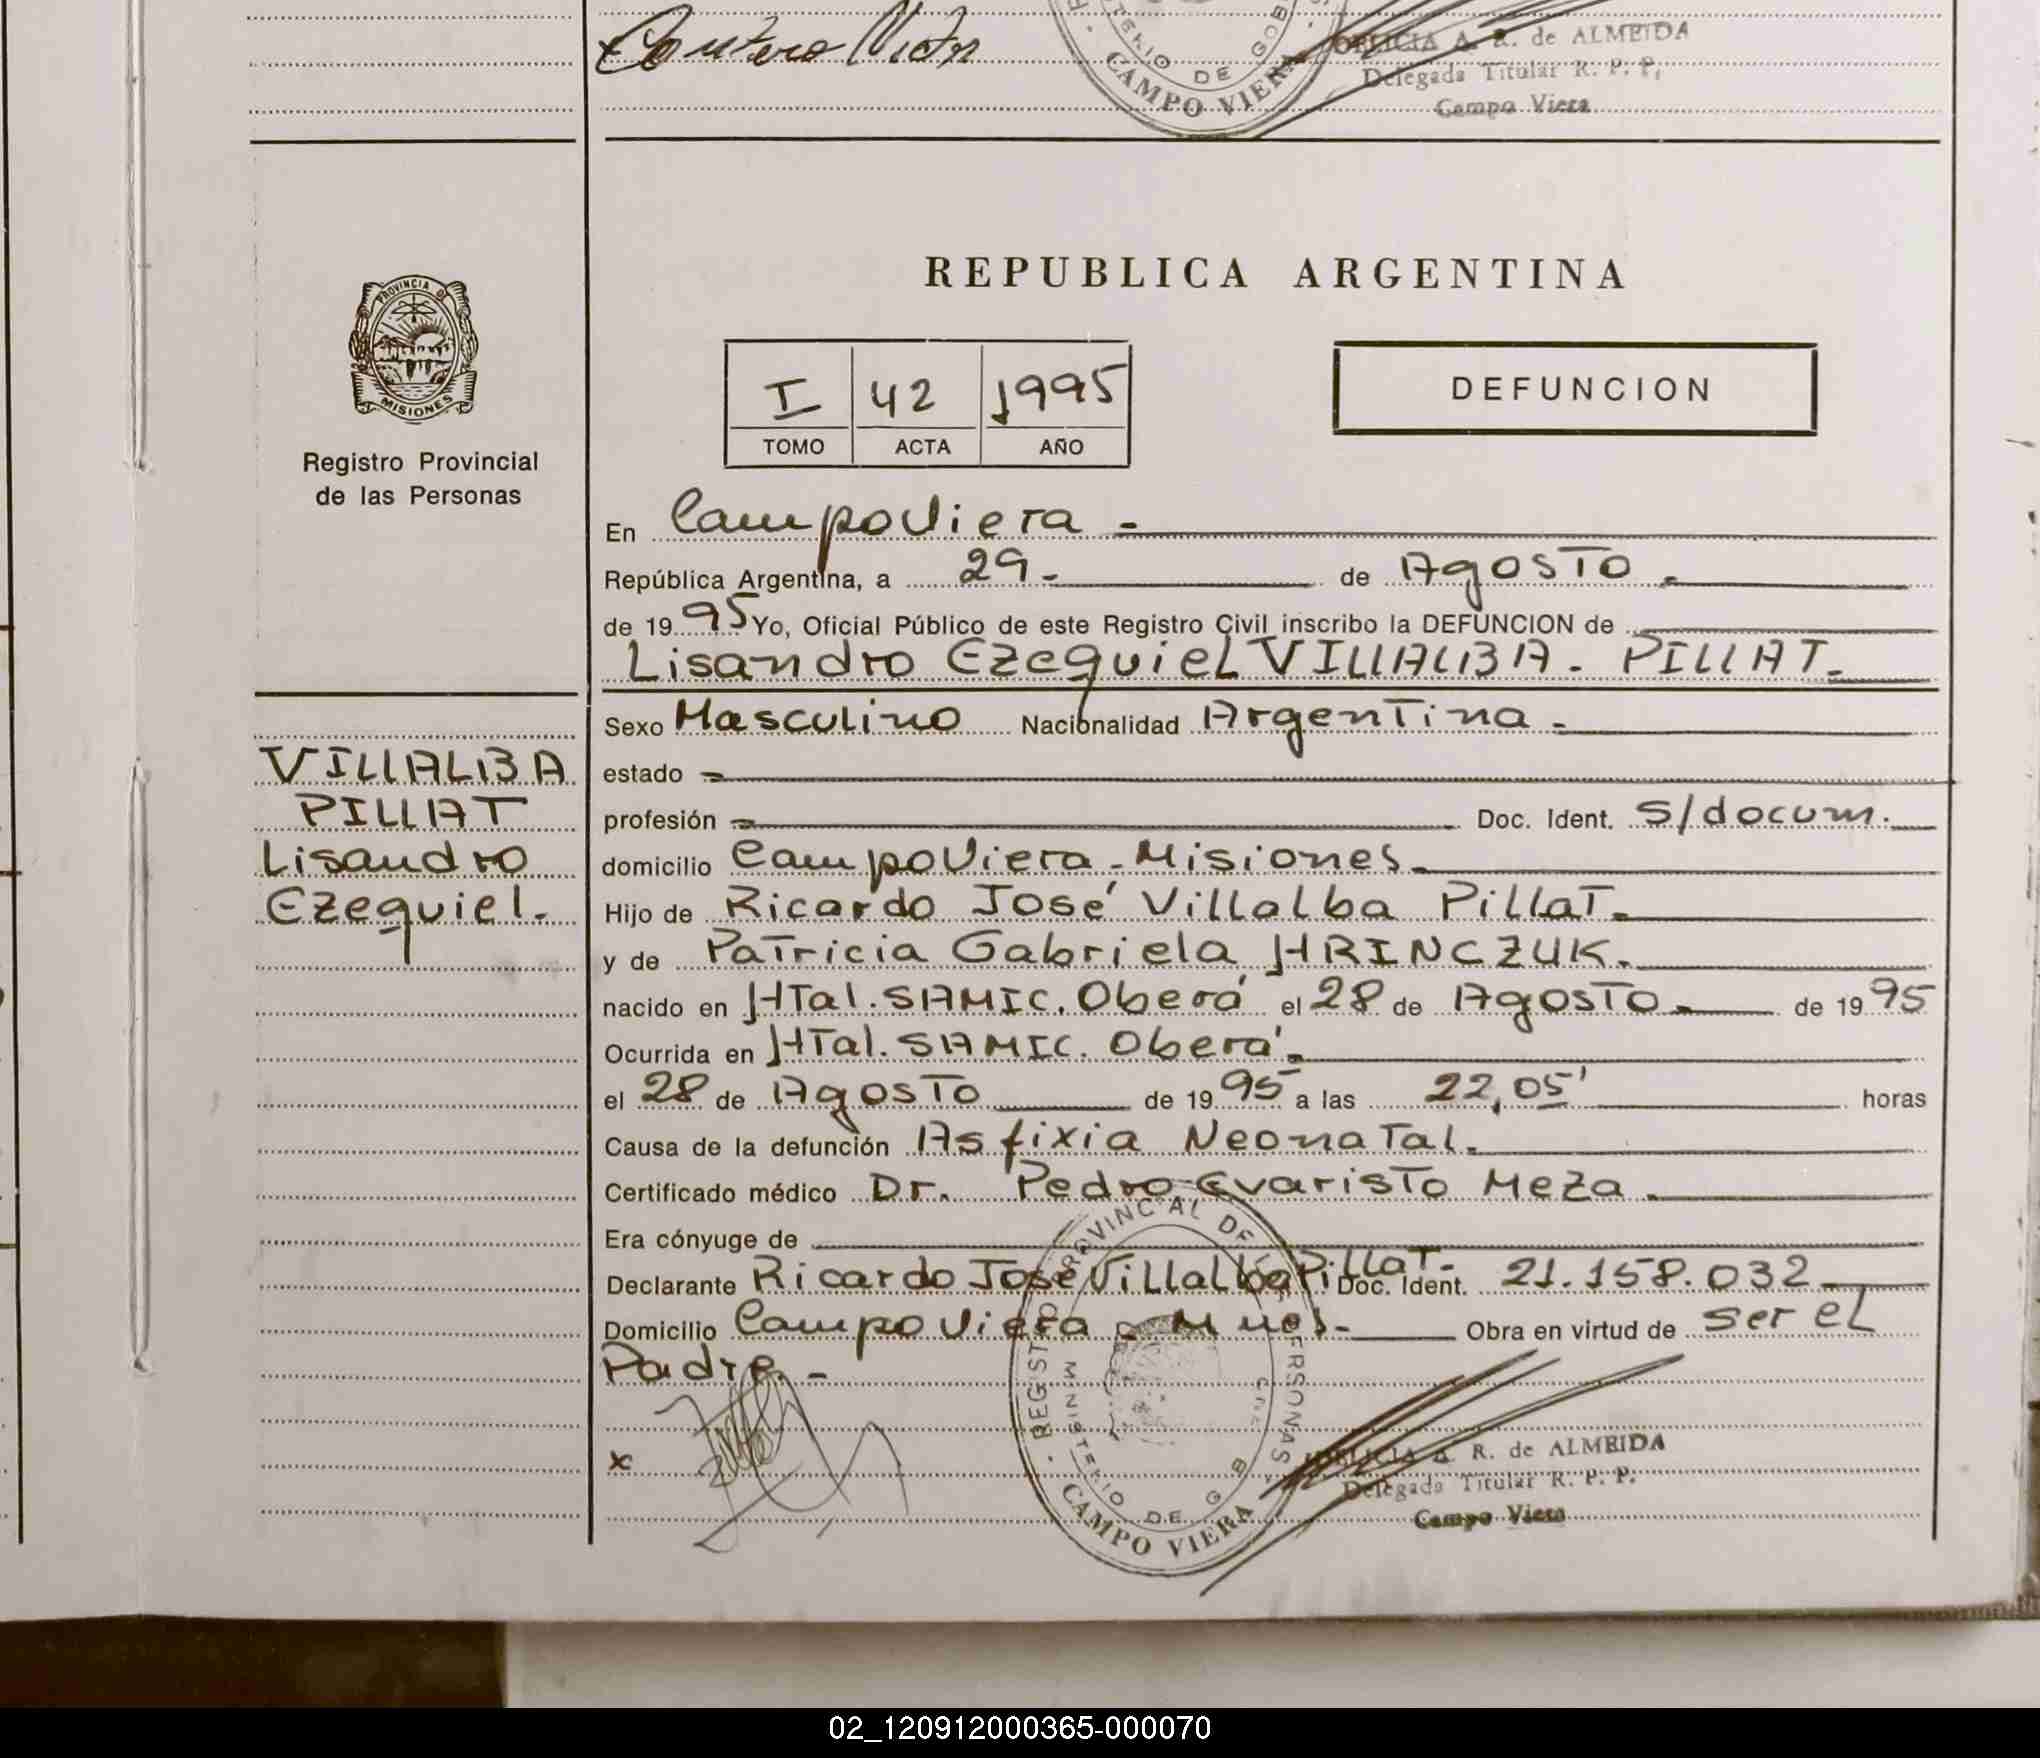 Cantero Victor
MINISTERIO DE GOB
CAMPO VIERA
DELICIA A. R. de ALMEIDA
Delegada Titular R. P. P.
Campo Viera
PROVINCIA DE
MISIONES
Registro Provincial
de las Personas
REPUBLICA ARGENTINA
I 42 1995
TOMO ACTA AÑO
DEFUNCION
En Campo Viera -
República Argentina, a 29- de Agosto -
de 1995 Yo, Oficial Público de este Registro Civil inscribo la DEFUNCION de
Lisandro EzequieL VILLALBA - PILLAT -
VILLALBA
PILLAT
Lisandro
Ezequiel.
Sexo Masculino Nacionalidad Argentina -
estado -
profesión - Doc. Ident. S/docum.
domicilio Campo Viera - Misiones -
Hijo de Ricardo José Villalba Pillat -
y de Patricia Gabriela HRINCZUK.
nacido en HTal. SAMIC. Oberá el 28 de Agosto - de 1995
Ocurrida en HTal. SAMIC. Oberá -
el 28 de Agosto de 1995 a las 22,05' horas
Causa de la defunción Asfixia Neonatal -
Certificado médico Dr. Pedro Evaristo Meza -
Era cónyuge de
Declarante Ricardo José Villalba Pillat - Doc. Ident. 21.158.032 -
Domicilio Campo Viera - Mnes - Obra en virtud de ser el
Padre. -
x
REGISTRO PROVINCIAL DE LAS PERSONAS
MINISTERIO DE GOB
CAMPO VIERA
DELICIA A. R. de ALMEIDA
Delegada Titular R. P. P.
Campo Viera
02_120912000365-000070